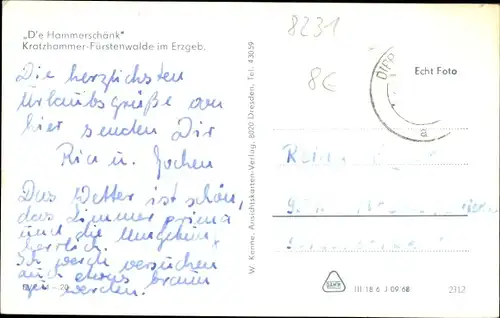 „D'e Hammerschänk"
Kratzhammer-Fürstenwalde im Erzgeb.
8231
8€
Echt Foto
DIPP
Die herzlichsten
Urlaubsgrüße von
hier senden Dir
Ria u. Jochen
Das Wetter ist schön,
das Zimmer prima
und die Umgebung
herrlich.
Ich werde versuchen
auch etwas braun
zu werden.
W. Kenne, Ansichtskarten-Verlag, 8020 Dresden, Tel. 43059
III 18 6 J 09/68
2312